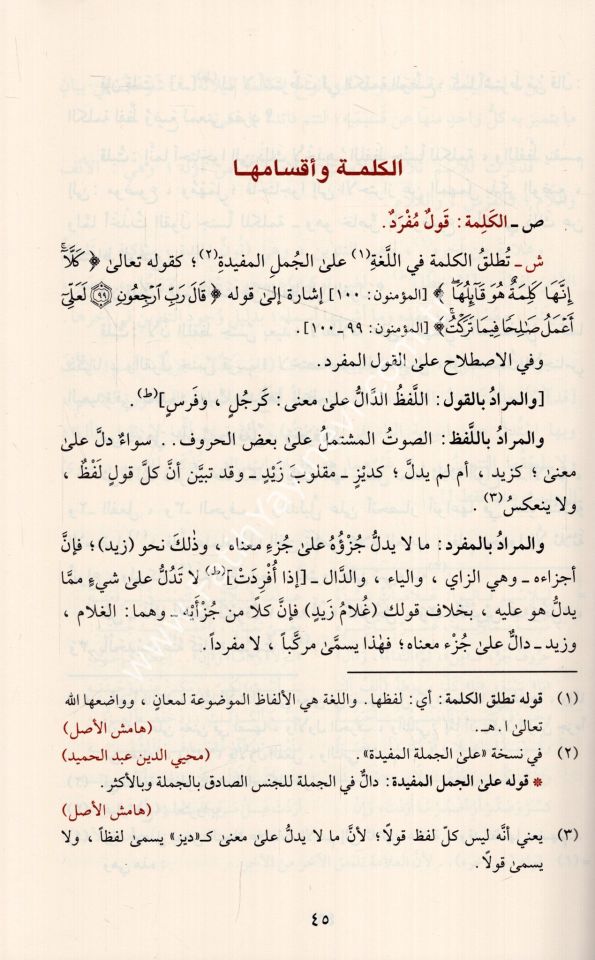 الكلمة وأقسامها
ص ـ الكَلِمة: قَولٌ مُفْرَدٌ.
ش ـ تُطلقُ الكلمة في اللغةِ(١) على الجُملِ المفيدةِ(٢)؛ كقوله تعالىٰ ﴿ كَلَّآۚ
إِنَّهَا كَلِمَةٌ هُوَ قَآئِلُهَاۖ ﴾ [المؤمنون: ١٠٠] إشارة إلىٰ قوله ﴿ قَالَ رَبِّ ٱرۡجِعُونِ ۝٩٩ لَعَلِّيٓ
أَعۡمَلُ صَٰلِحٗا فِيمَا تَرَكۡتُۚ﴾ [المؤمنون: ٩٩ـ١٠٠].
وفي الاصطلاح علىٰ القول المفرد.
[والمرادُ بالقول: اللَّفظُ الدَّالُّ علىٰ معنى: كَرجُلٍ، وفَرَسٍ](ط).
والمرادُ باللَّفظ: الصوتُ المشتملُ علىٰ بعض الحروف.. سواءٌ دلَّ علىٰ
معنىٰ؛ كزيد، أم لم يدلَّ؛ كديْزٍ ـ مقلوبَ زَيْدٍ ـ وقد تبيَّن أنَّ كلَّ قولٍ لَفْظٌ،
ولا ينعكسُ(٣).
والمرادُ بالمفرد: ما لا يدلُّ جُزْؤُهُ علىٰ جُزءِ معناه، وذٰلكَ نحو (زيد)؛ فإنَّ
أجزاءه ـ وهي الزاي، والياء، والدَّال ـ [إذا أُفْرِدَتْ](ط) لا تَدُلُّ علىٰ شيءٍ ممَّا
يدلُّ هو عليه، بخلاف قولك (غُلامُ زَيدٍ) فإنَّ كلًا من جُزْأَيْه ـ وهما: الغلام،
وزيد ـ دالٌّ علىٰ جُزْء معناه؛ فهٰذا يسمَّىٰ مركَّباً، لا مفرداً.
(١) قوله تطلق الكلمة: أي: لفظها. واللغة هي الألفاظ الموضوعة لمعانٍ، وواضعها الله
تعالىٰ ا.هـ. (هامش الأصل)
(٢) في نسخة «علىٰ الجملة المفيدة». (محيي الدين عبد الحميد)
* قوله علىٰ الجمل المفيدة: دالٌّ في الجملة للجنس الصادق بالجملة وبالأكثر.
(هامش الأصل)
(٣) يعني أنَّه ليس كلّ لفظ قولًا؛ لأنَّ ما لا يدلُّ علىٰ معنىٰ كـ«ديز» يسمىٰ لفظاً، ولا
يسمىٰ قولًا.
٤٥